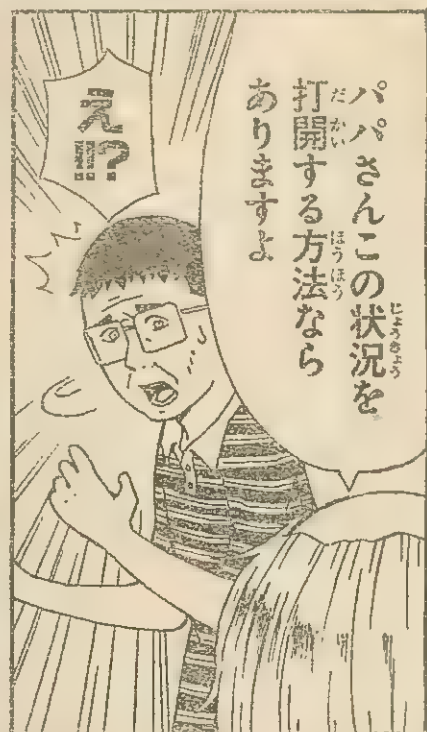 パパさんこの状況を
打開する方法なら
ありますよ
え!?